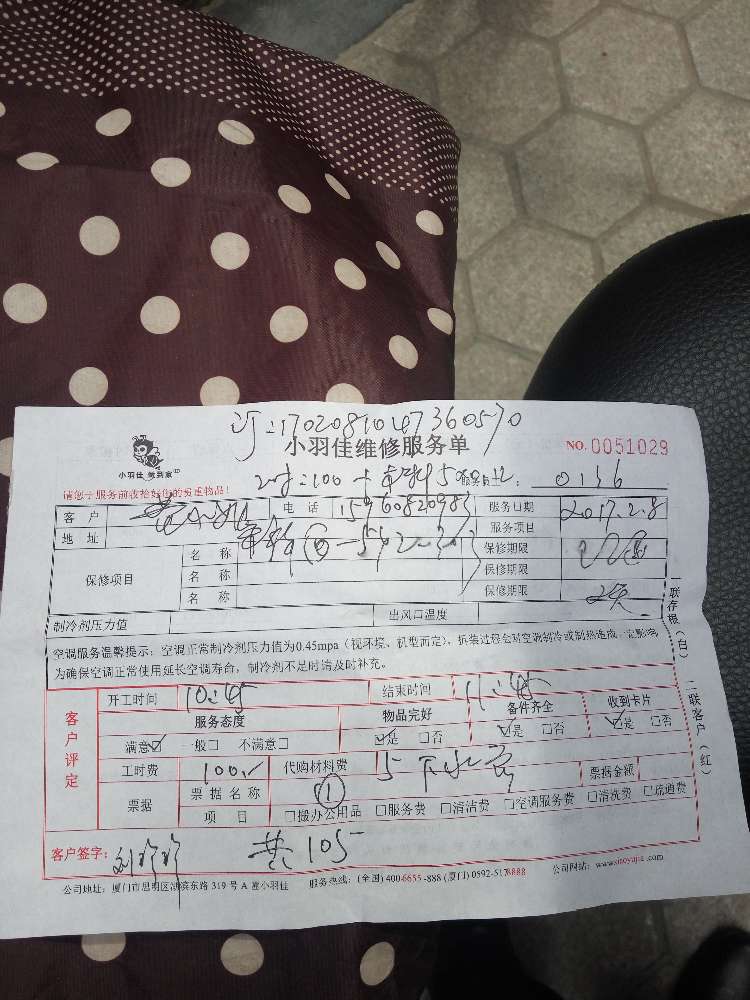 订:17020810147360570
小羽佳维修服务单
NO. 0051029
小羽佳 美到家
2时:100 + 5 0136
请您于服务前收拾好您的贵重物品!
客 户 电 话 15960820983 服务日期 2017.2.8
地 址 服务项目
保修项目 名 称 保修期限
名 称 保修期限
名 称 保修期限
制冷剂压力值 出风口温度
空调服务温馨提示:空调正常制冷剂压力值为0.45mpa(视环境、机型而定),拆装过程会对空调制冷或制热造成一定影响,
为确保空调正常使用延长空调寿命,制冷剂不足时请及时补充。
一联存根(白)
二联客户(红)
客户评定
开工时间 10:45 结束时间 11:45
服务态度 物品完好 备件齐全 收到卡片
满意☑ 一般□ 不满意□ ☑是 □否 ☑是 □否 ☑是 □否
工时费 100.- 代购材料费 5 下水 票据金额
票据 票据名称 ①
项 目 □搬办公用品 □服务费 □清洁费 □空调服务费 □清洗费 □疏通费
客户签字: 共105
公司地址:厦门市思明区湖滨东路 319 号 A 座小羽佳 服务热线:(全国) 400-6655-888 (厦门) 0592-5178888 公司网站:www.xiaoyujia.com